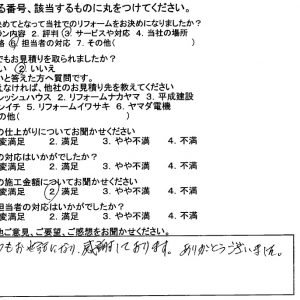 る番号、該当するものに丸をつけてください。
決めてとなって当社でのリフォームをお決めになりましたか?
ラン内容 2. 評判 ③ サービスや対応 4. 当社の場所
格 ⑥ 担当者の対応 7. その他(
でもお見積りを取られましたか?
い ② いいえ
いと答えた方へ質問です。
えなければ、他社のお見積り先を教えてください
レッシュハウス 2. リフォームナカヤマ 3. 平成建設
ンイチ 5. リフォームイワサキ 6. ヤマダ電機
の他(
の仕上がりについてお聞かせください
変満足 2. 満足 3. やや不満 4. 不満
の対応はいかがでしたか?
変満足 2. 満足 3. やや不満 4. 不満
の施工金額についてお聞かせください
変満足 ② 満足 3. やや不満 4. 不満
担当者の対応はいかがでしたか?
変満足 2. 満足 3. やや不満 4. 不満
他ご意見、ご要望、ご感想をお聞かせください。
つもお世話になり、感謝しております。ありがとうございました。